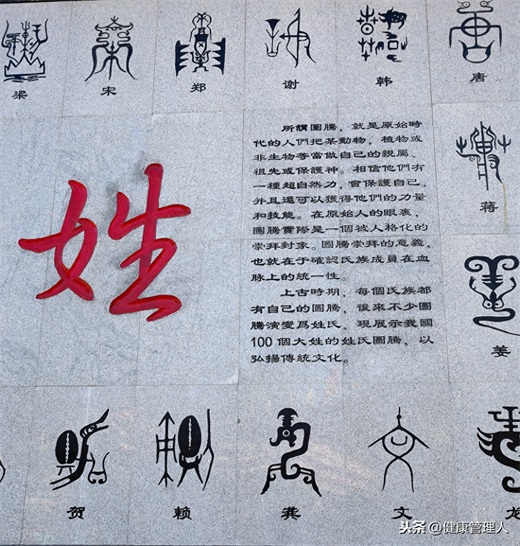 梁 宋 郑 谢 韩 唐
蒋
姓
所謂圖騰，就是原始時
代的人們把某動物，植物或
非生物等當做自己的親屬、
祖先或保護神。相信他們有
一種超自然力，會保護自己，
并且還可以獲得他們的力量
和技能。在原始人的眼裏，
圖騰實際是一個被人格化的
崇拜對象。圖騰崇拜的意義，
也就在于確認氏族成員在血
脉上的統一性。
上古時期，每個氏族都
有自己的圖騰，後來不少圖
騰演變爲姓氏，現展示我國
100個大姓的姓氏圖騰，以
弘揚傳統文化。
姜
贺 赖 龚 文 龙
头条@健康管理人